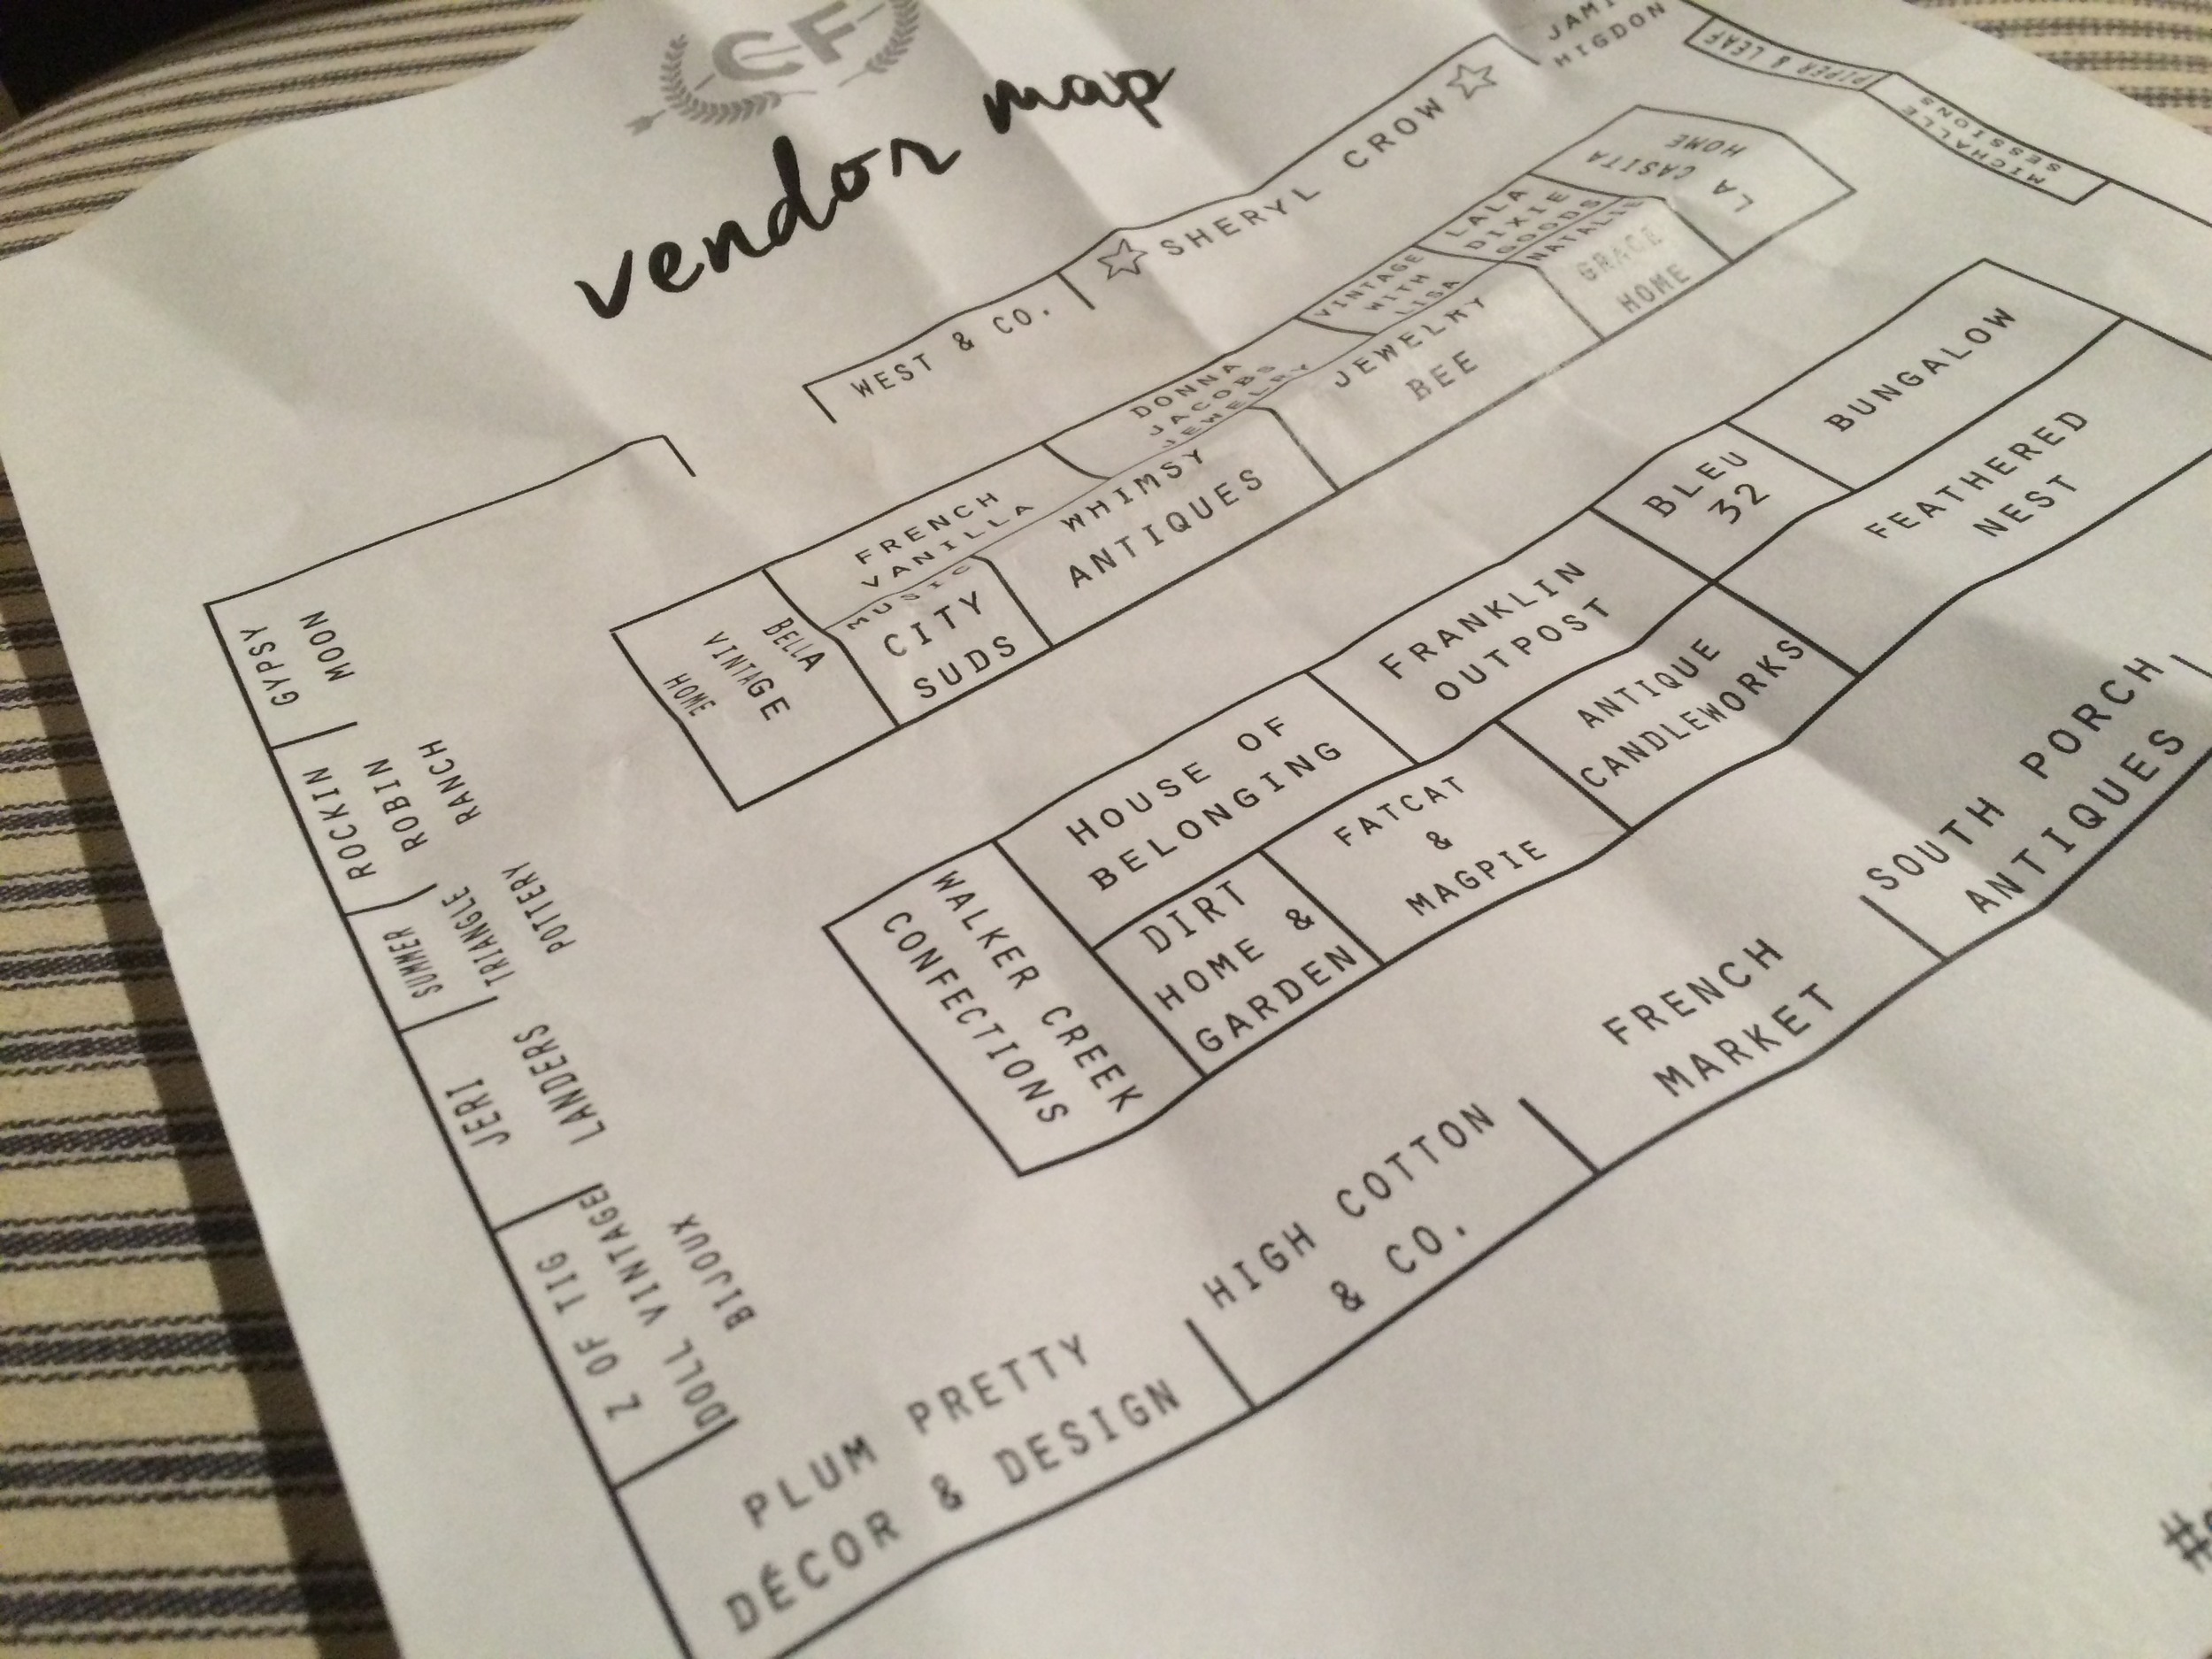 CF
vendor map
JAMI
HIGDON
PIPER & LEAF
MICHALLE
SESSIONS
WEST & CO.
☆ SHERYL CROW ☆
LA CASITA
HOME
LALA
DIXIE
GOODS
NATALIE
GRACE
HOME
VINTAGE
WITH
LISA
JEWELRY
BEE
DONNA
JACOBS
JEWELRY
WHIMSY
ANTIQUES
FRENCH
VANILLA
MUSIC
CITY
SUDS
BELLA
VINTAGE
HOME
GYPSY
MOON
ROCKIN
ROBIN
RANCH
SUMMER
TRIANGLE
POTTERY
JERI
LANDERS
Z OF TIG
DOLL VINTAGE
BIJOUX
BUNGALOW
BLEU
32
FEATHERED
NEST
FRANKLIN
OUTPOST
ANTIQUE
CANDLEWORKS
HOUSE OF
BELONGING
FATCAT
&
MAGPIE
DIRT
HOME &
GARDEN
WALKER CREEK
CONFECTIONS
SOUTH PORCH
ANTIQUES
FRENCH
MARKET
HIGH COTTON
& CO.
PLUM PRETTY
DÉCOR & DESIGN